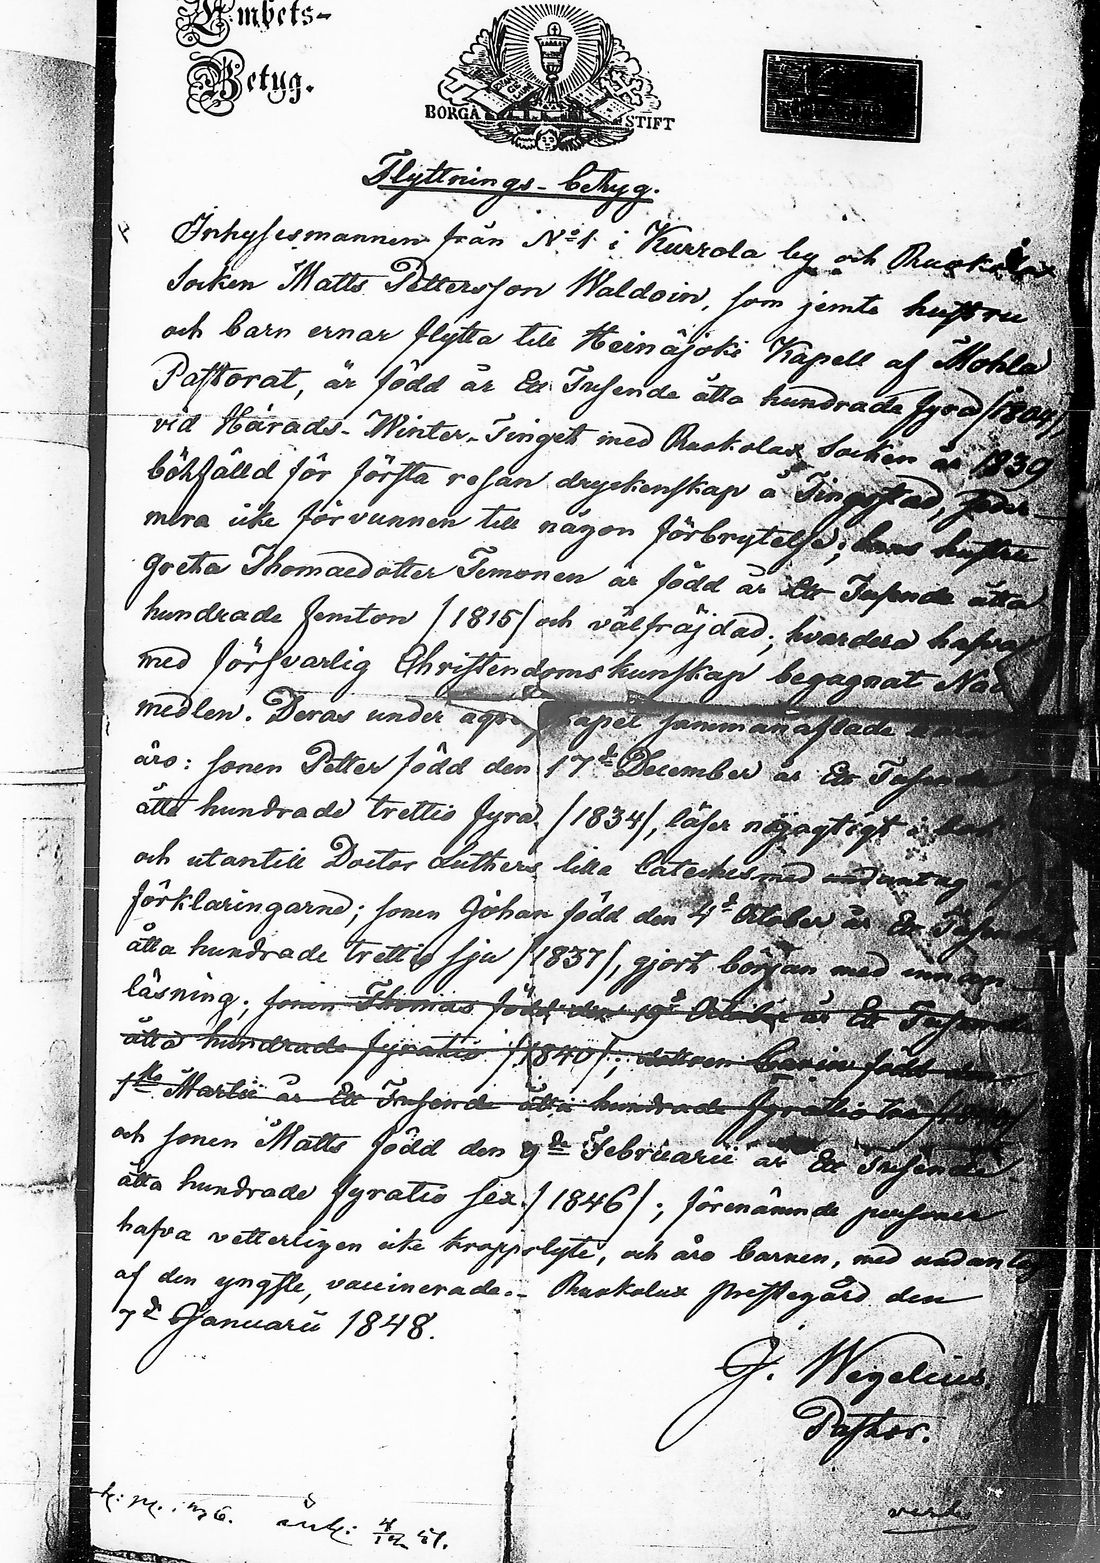 Embets-
Betyg.
BORGÅ STIFT
Flyttnings-betyg.
Inhysesmannen från No 1 i Kurrola by och Ruokolax
Socken Matts Pettersson Waldoin, som jemte hustru
och barn ernar flytta till Heinäjoki Kapell af Mohla
Pastorat, är född år Ett Tusende åtta hundrade fyra /1804/
vid Härads-Winter-Tinget med Ruokolax socken år 1839
bötfälld för första resan dryckenskap å Tingsstad, 
mera icke förvunnen till någon förbrytelse; hans hustru
Greta Thomaedotter Temonen är född år Ett Tusende åtta
hundrade femton /1815/ och välfräjdad; hvardera hafva
med försvarlig Christendomskunskap begagnat Nåd
medlen. Deras under sammanaflade barn
äro: sonen Petter född den 17de December år Ett Tusende
åtta hundrade trettio fyra /1834/, läser nöjagtigt i bok
och utantill Doctor Luthers lilla Cateches med undantag af
förklaringarne; sonen Johan född den 4de October år Ett Tusende
åtta hundrade trettio sju /1837/, gjort början med innan
läsning; sonen Thomas född den 19de October år Ett Tusende
åtta hundrade fyratio /1840/; dottren Carin född den
1sta Martii år Ett Tusende åtta hundrade fyratio
och sonen Matts född den 9de Februarii år Ett Tusende
åtta hundrade fyratio sex /1846/; förenämnde personer
hafva vetterligen icke kroppslyte, och äro barnen, med undantag
af den yngste, vaccinerade.- Ruokolax prestegård den
7de Januarii 1848.
J. Wegelius.
Pastor.